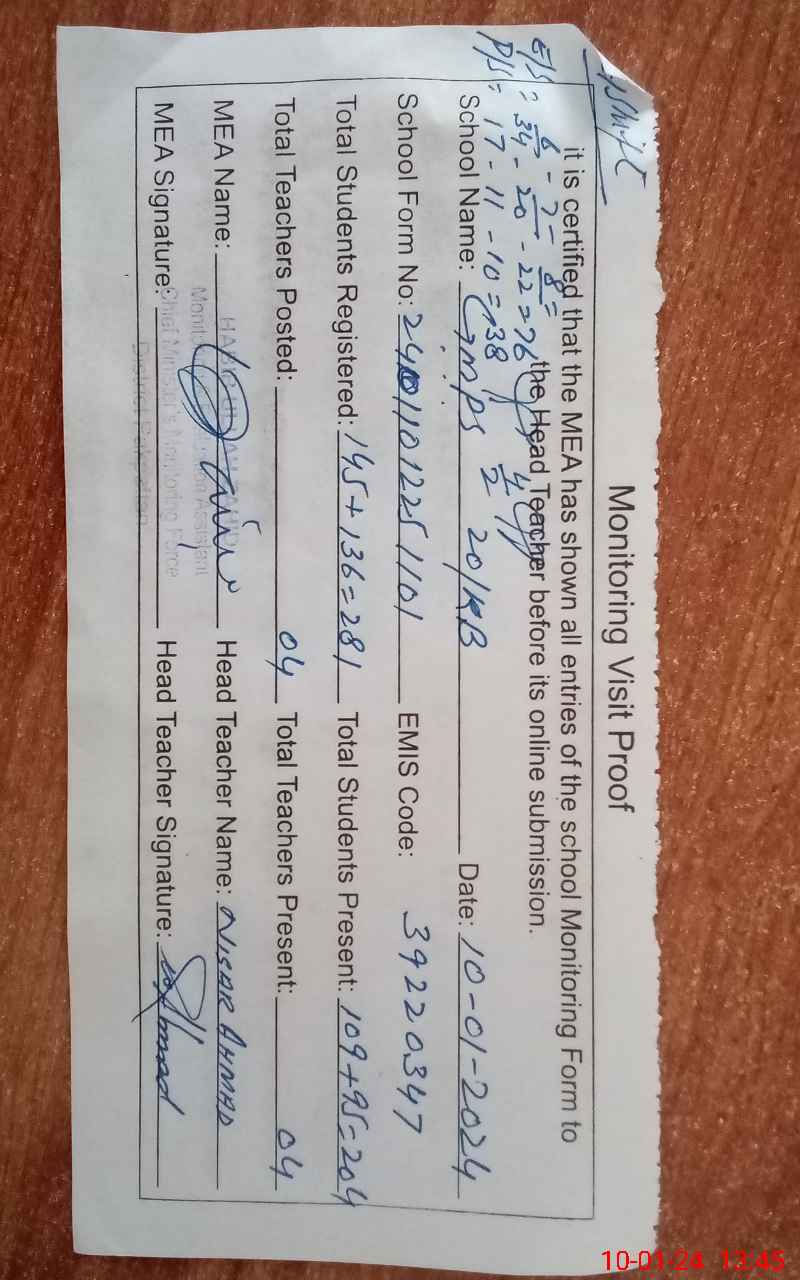 Monitoring Visit Proof
it is certified that the MEA has shown all entries of the school Monitoring Form to
the Head Teacher before its online submission.
E/S = 6 - 7 - 8 =
34 - 20 - 22 = 76
P/S = 17 - 11 - 10 = 38
School Name: GMPS 20/KB Date: 10-01-2024
School Form No: 2401101225 1101 EMIS Code: 39220347
Total Students Registered: 145+136=281 Total Students Present: 109+95=204
Total Teachers Posted: 04 Total Teachers Present: 04
MEA Name: Head Teacher Name: NISAR AHMAD
MEA Signature: Head Teacher Signature: Ahmad
Chief Minister's Monitoring Force
10-01-24 13:45